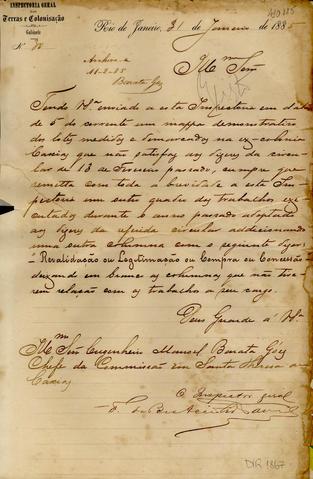 INSPECTORIA GERAL
DAS
Terras e Colonisação
Gabinete
Nº
Rio de Janeiro, 31 de Janeiro de 1885
Archive-se
11-2-85
Barata Góes
Illmo Snr
Tendo Vmce enviado a esta Inspectoria em data
de 5 do corrente um mappa demonstrativo
dos lotes medidos e demarcados na ex-colonia
Caxias que não satisfaz aos dizeres da circu-
lar de 13 de Fevereiro passado, cumpre que
remetta com toda a brevidade a esta Ins-
pectoria um outro quadro dos trabalhos exe-
cutados durante o anno passado adoptado
aos dizeres da referida circular addicionando
uma outra columna com o seguinte dizer,
- Revalidação ou Legitimação ou Compra ou Concessão -
deixando em branco as columnas que não tive-
rem relação com os trabalhos a seu cargo.
Deus Guarde a Vmce
Illmo Snr Engenheiro Manoel Barata Góes
Chefe da Commissão em Santa Thereza de
Caxias
O Inspector geral
DIR 1867